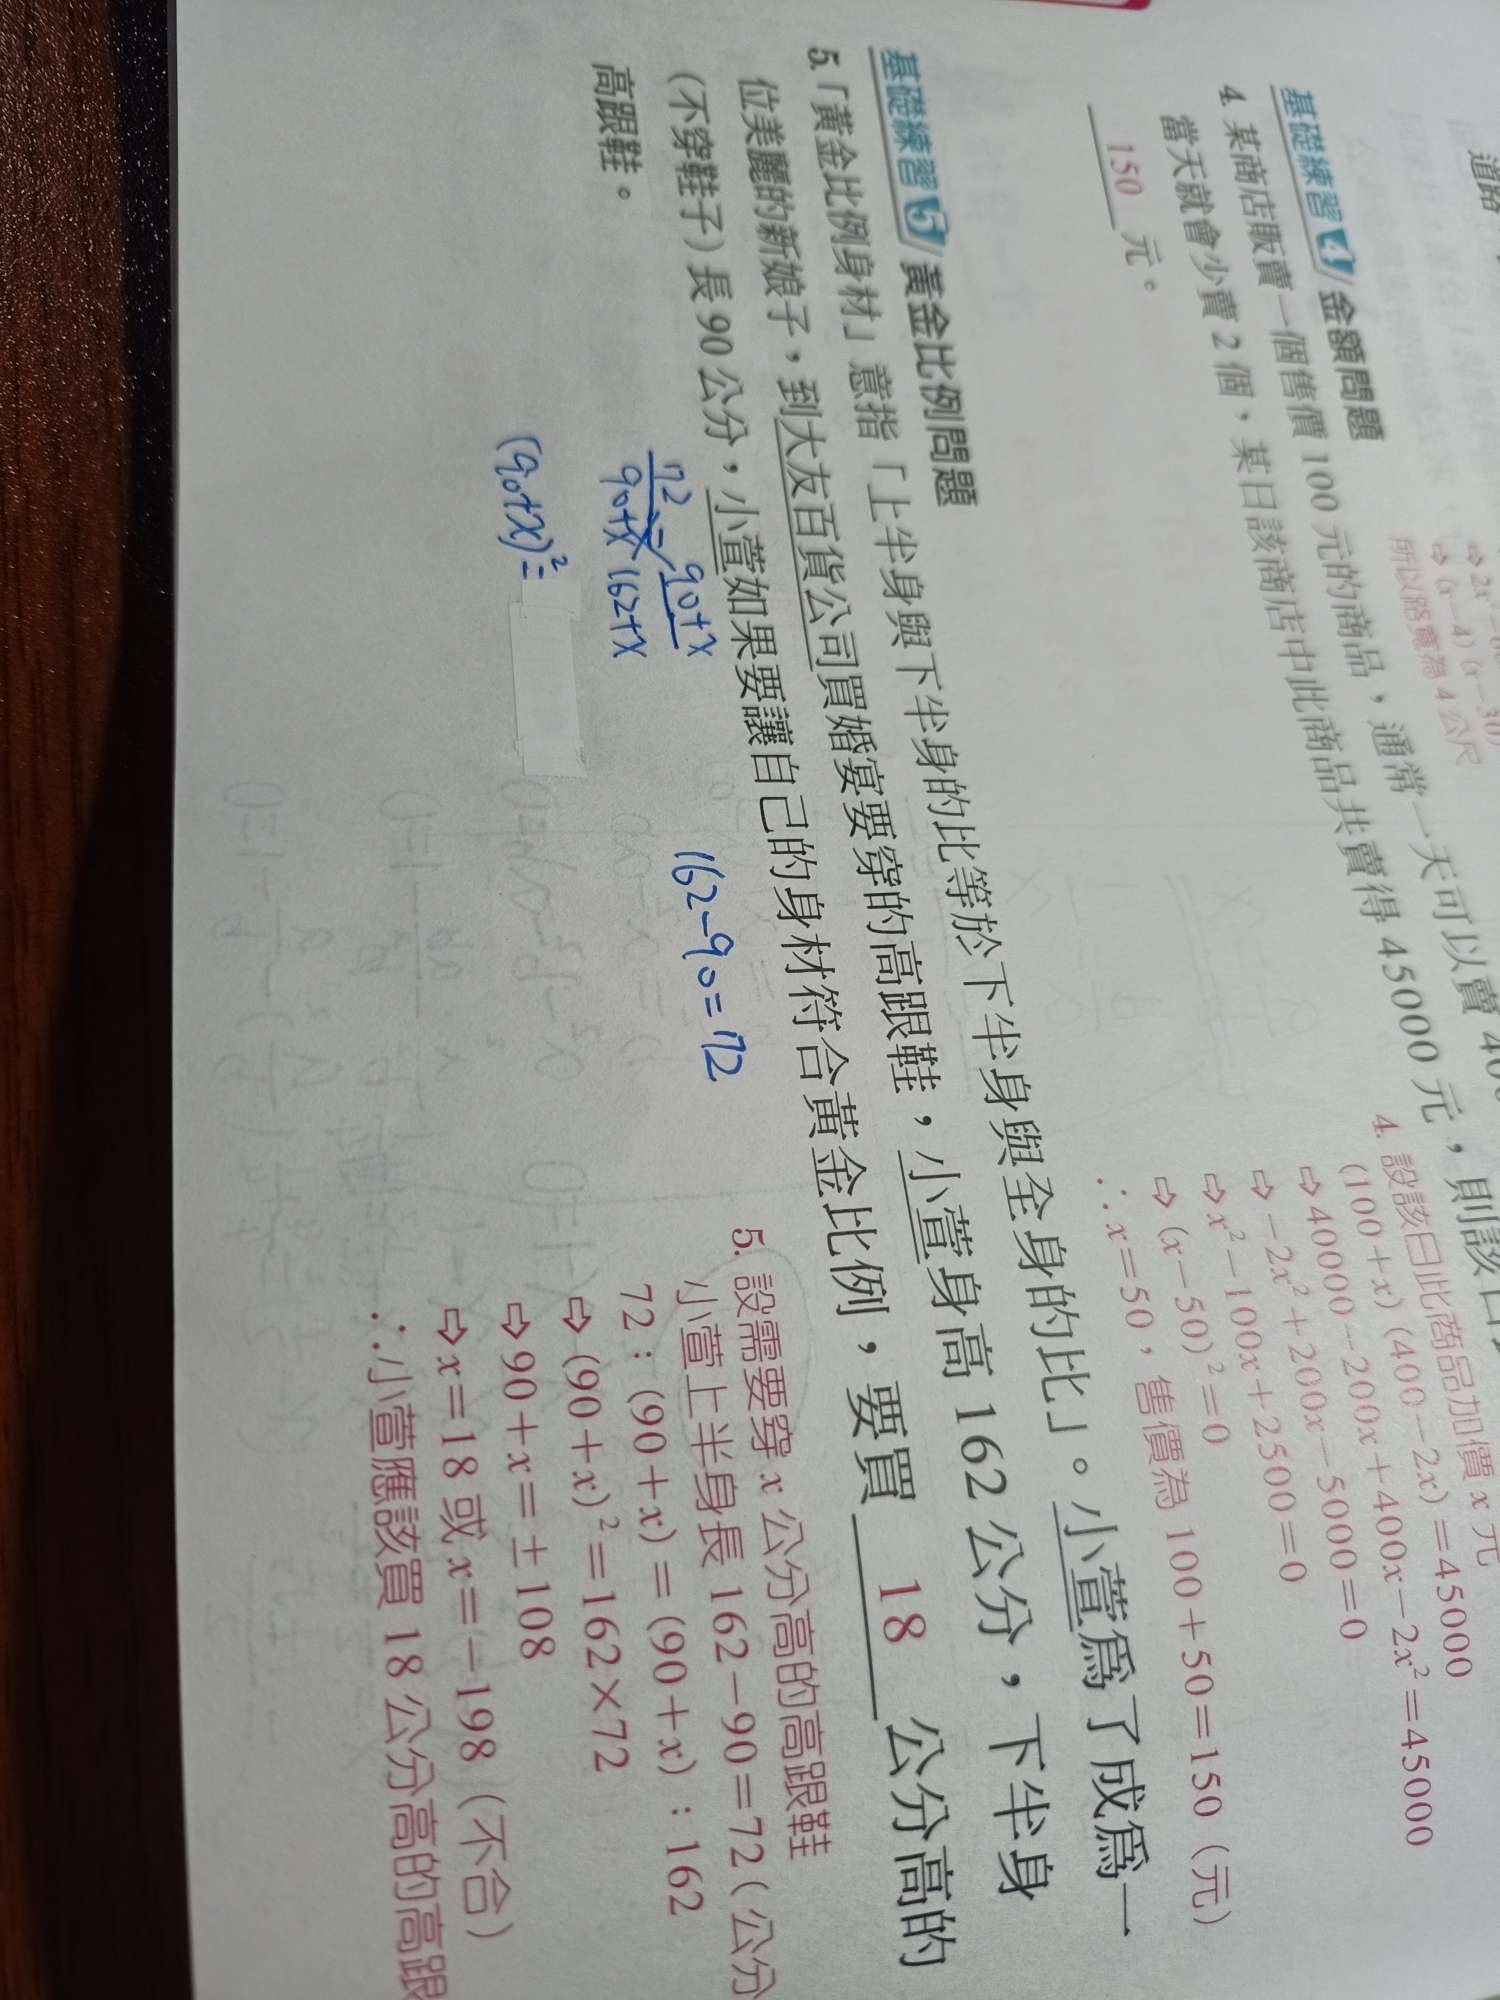 道路
⇨(x－4)(x－30)
所以路寬為4公尺
基礎練習4 金額問題
4. 某商店販賣一個售價100元的商品，通常一天可以賣
當天就會少賣2個，某日該商店中此商品共賣得45000元，則該日
150 元。
4. 設該日此商品加價x元
(100＋x)(400－2x)＝45000
⇨40000－200x＋400x－2x²＝45000
⇨－2x²＋200x－5000＝0
⇨x²－100x＋2500＝0
⇨(x－50)²＝0
∴x＝50，售價為100＋50＝150（元）
基礎練習5 黃金比例問題
5.「黃金比例身材」意指「上半身與下半身的比等於下半身與全身的比」。小萱為了成為一
位美麗的新娘子，到大友百貨公司買婚宴要穿的高跟鞋，小萱身高162公分，下半身
（不穿鞋子）長90公分，小萱如果要讓自己的身材符合黃金比例，要買 18 公分高的
高跟鞋。
72/90+x = 90+x/162+x
(90+x)²=
162-90=72
5. 設需要穿x公分高的高跟鞋
小萱上半身長162－90＝72（公分
72：(90＋x)＝(90＋x)：162
⇨(90＋x)²＝162×72
⇨90＋x＝±108
⇨x＝18或x＝－198（不合）
∴小萱應該買18公分高的高跟